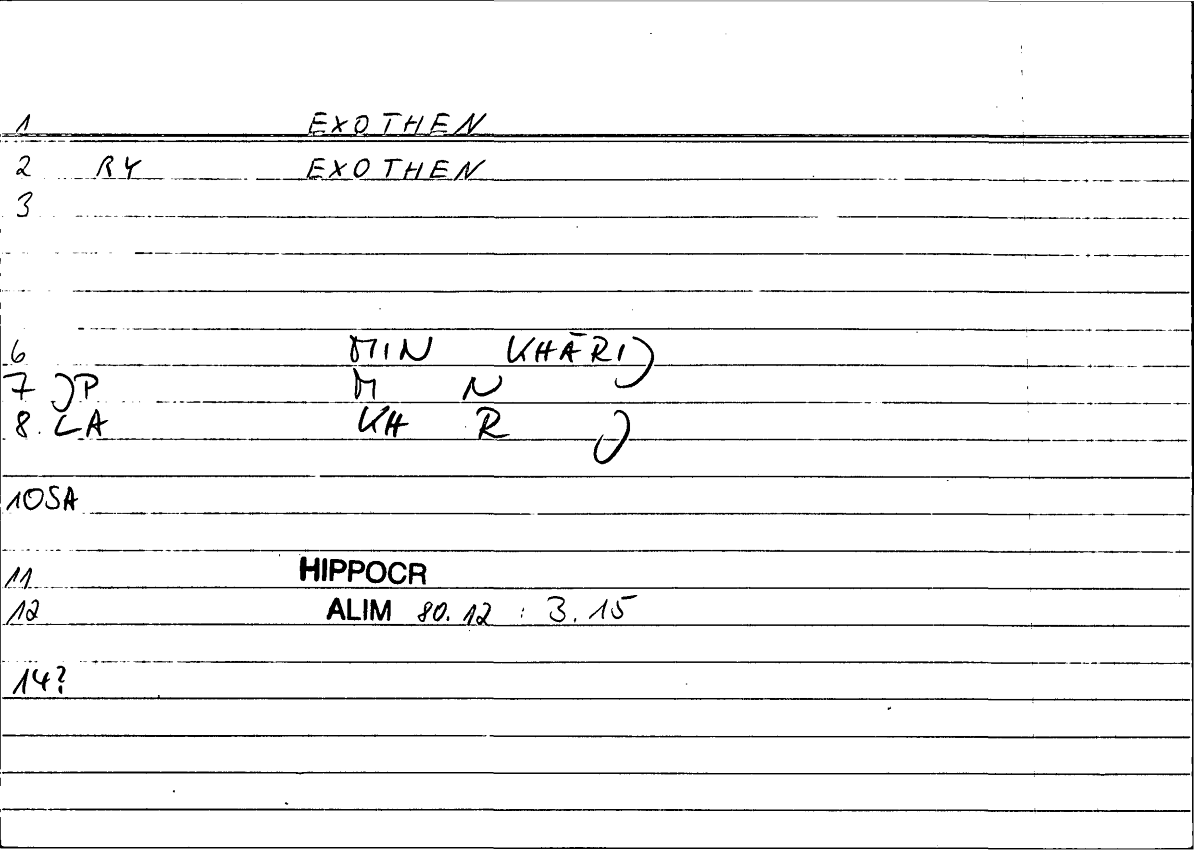 1 EXOTHEN
2 RY EXOTHEN
3
6 MIN KHĀRIJ
7 JP M N
8. LA KH R J
10SA
11 HIPPOCR
12 ALIM 80.12 : 3.15
14?